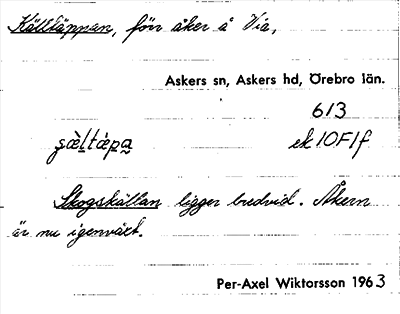 Källtäppan, förr åker å Via,
Askers sn, Askers hd, Örebro län.
613
ek 10F1f
Skogskällan ligger bredvid. Åkern
är nu igenväxt.
Per-Axel Wiktorsson 1963